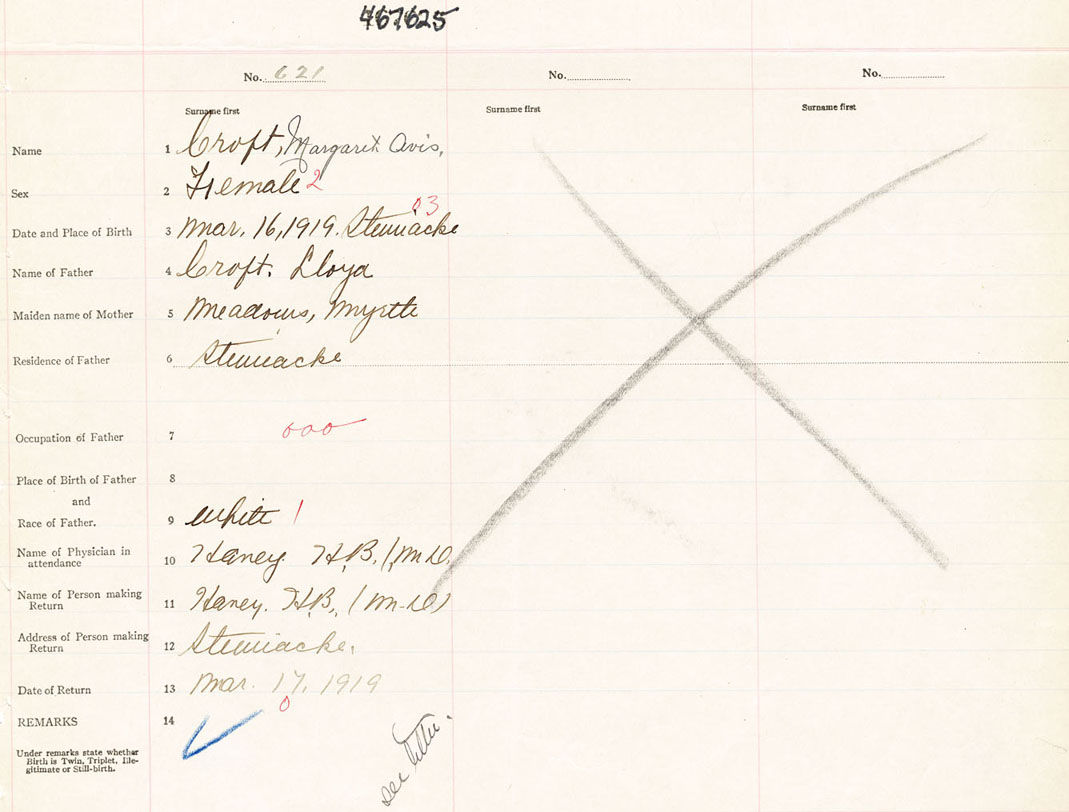 467625
No. 621 No. No.
Surname first Surname first Surname first
Name 1 Croft, Margaret Avis,
Sex 2 Female 2
03
Date and Place of Birth 3 Mar. 16, 1919. Stewiacke
Name of Father 4 Croft. Lloyd
Maiden name of Mother 5 Meadows, Myrtle
Residence of Father 6 Stewiacke
Occupation of Father 7 000
Place of Birth of Father 8
and
Race of Father. 9 White 1
Name of Physician in
attendance 10 Haney. H.B. (M.D.
Name of Person making
Return 11 Haney. H.B., (M.D)
Address of Person making
Return 12 Stewiacke.
Date of Return 13 Mar. 17, 1919
0
REMARKS 14
Under remarks state whether
Birth is Twin, Triplet, Ille-
gitimate or Still-birth.
see letter.